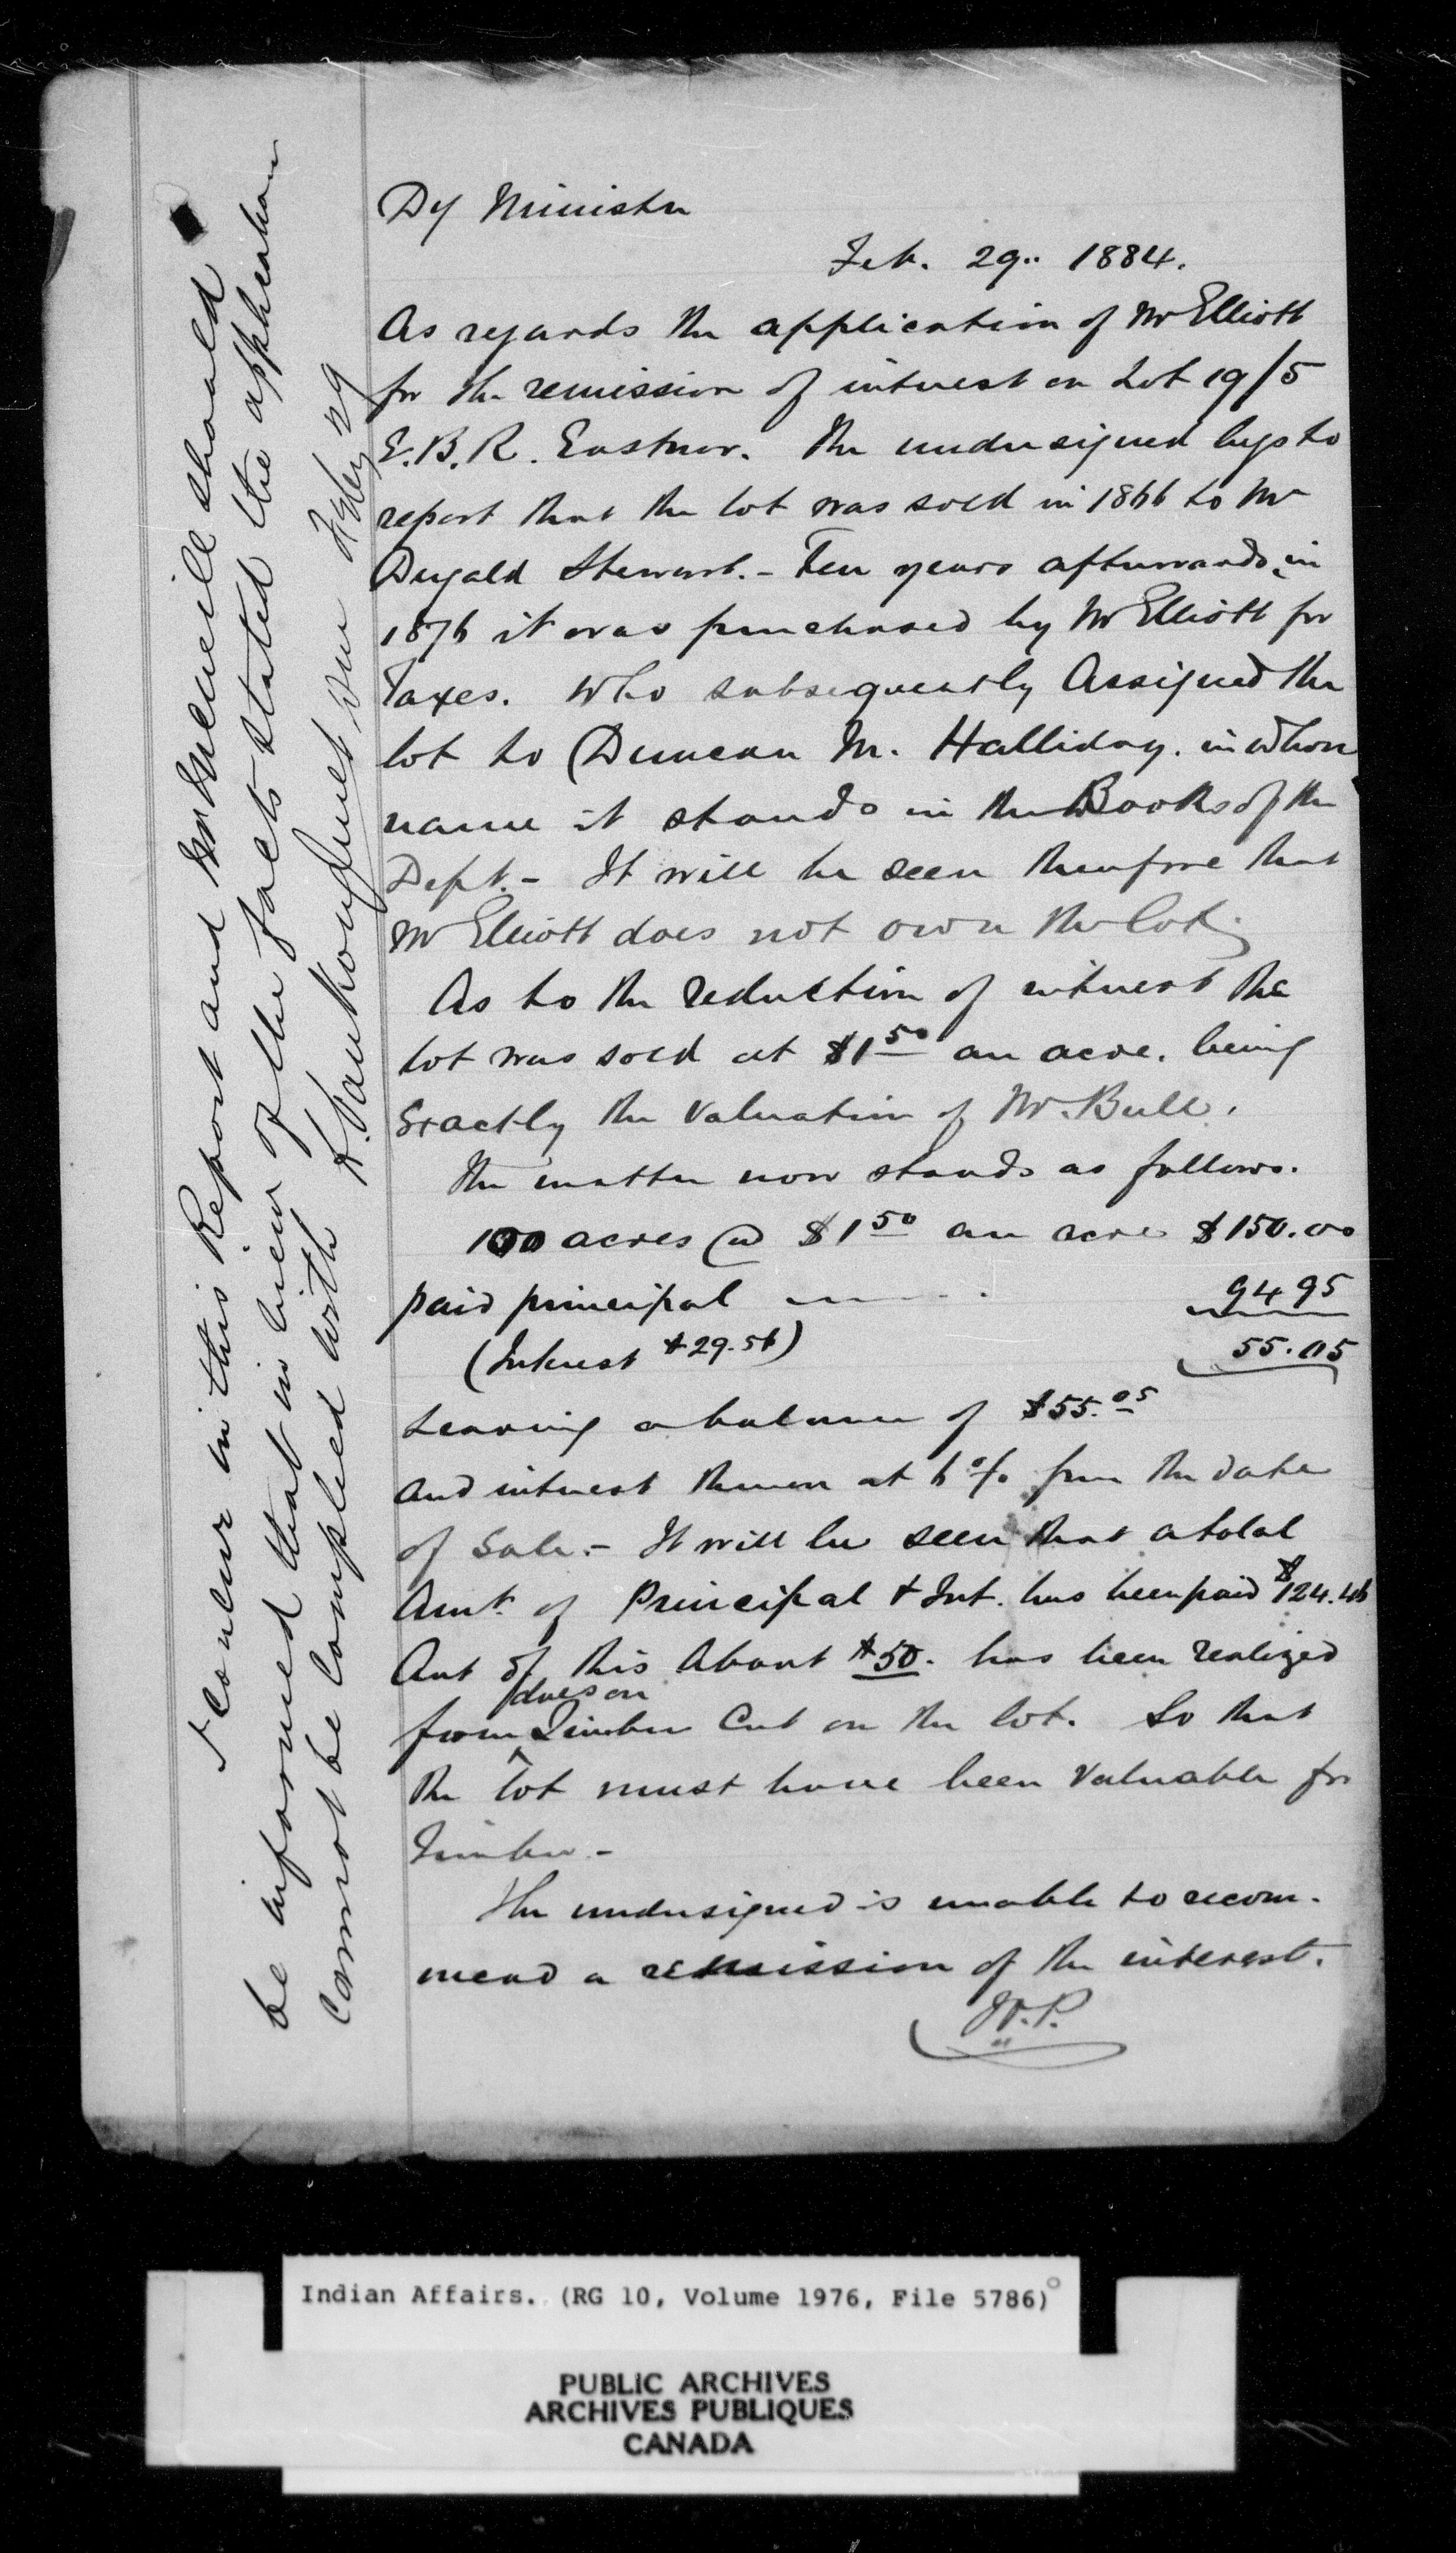 Dy Minister
Feb. 29.. 1884.
As regards the application of Mr Elliott
for the remission of interest on Lot 19/5
E.B.R. Eastnor. The undersigned begs to
report that the lot was sold in 1866 to Mr
Dugald Stewart. - Ten years afterwards, in
1876 it was purchased by Mr Elliott for
Taxes. Who subsequently Assigned the
lot to Duncan M. Halliday. in whose
name it stands in the Books of the
Dept. - It will be seen therefore that
Mr Elliott does not own the lot.
As to the reduction of interest the
lot was sold at $1 50 an acre. being
Exactly the Valuation of Mr. Bull.
The matter now stands as follows.
100 acres @ $1 50 an acre $150.00
paid principal 94 95
(Interest $29.51) 55.05
Leaving a balance of $55.05
and interest thereon at 6% from the date
of Sale. - It will be seen that a total
Amt. of Principal & Int. has been paid $124.46
Out of this About $50. has been realized
from dues on Timber Cut on the lot. So that
the lot must have been Valuable for
Timber. -
The undersigned is unable to recom-
mend a remission of the interest.
W.P.
I concur in this Report and Mr McNeill should
be informed that in view of the facts stated the application
cannot be complied with L. VanKoughnet
29
Indian Affairs. (RG 10, Volume 1976, File 5786)
PUBLIC ARCHIVES
ARCHIVES PUBLIQUES
CANADA